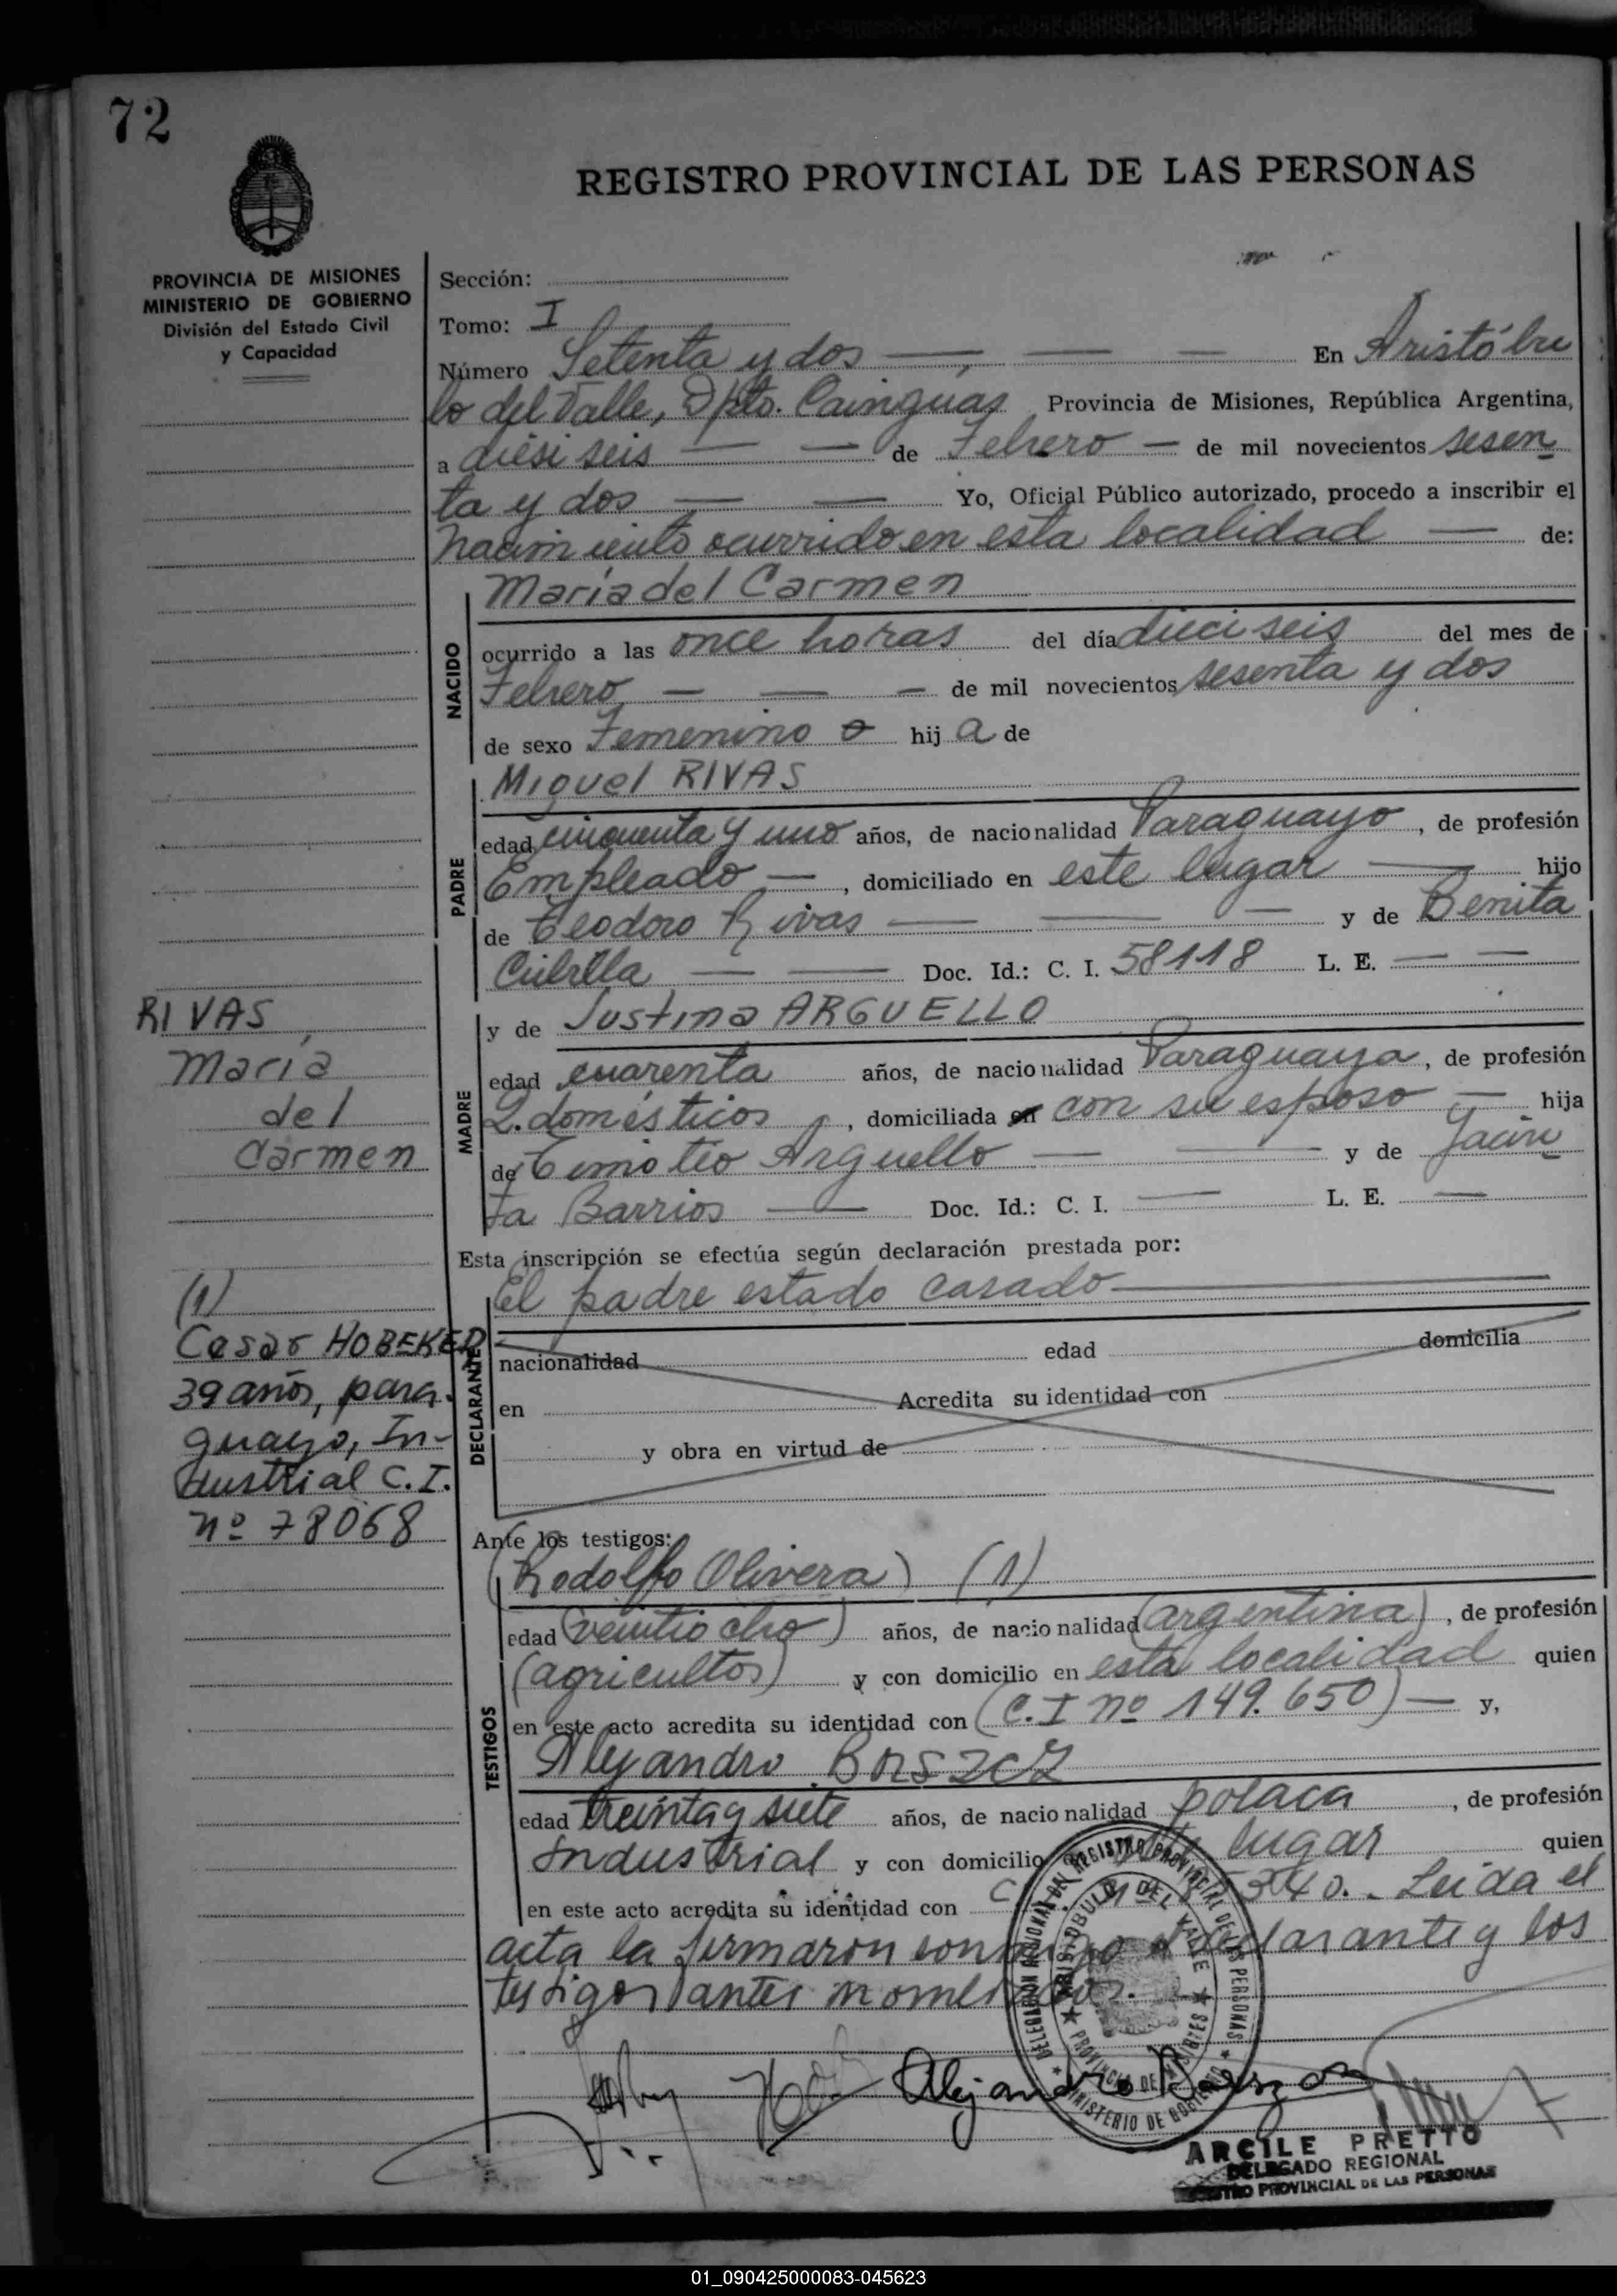 72
REGISTRO PROVINCIAL DE LAS PERSONAS
PROVINCIA DE MISIONES
MINISTERIO DE GOBIERNO
División del Estado Civil
y Capacidad
Sección:
Tomo: I
Número Setenta y dos — — — En Aristóbu
lo del Valle, Dpto. Cainguás Provincia de Misiones, República Argentina,
a diesi seis — — de Febrero — de mil novecientos sesen
ta y dos — — Yo, Oficial Público autorizado, procedo a inscribir el
nacimiento ocurrido en esta localidad — de:
María del Carmen
NACIDO
ocurrido a las once horas del día dieciseis del mes de
Febrero — — — de mil novecientos sesenta y dos
de sexo Femenino hij a de
Miguel RIVAS
PADRE
edad cincuenta y uno años, de nacionalidad Paraguayo, de profesión
Empleado —, domiciliado en este lugar — hijo
de Teodoro Rivas — — — y de Benita
— — Doc. Id.: C. I. 58118 L. E. — —
MADRE
y de Justina ARGUELLO
edad cuarenta años, de nacionalidad Paraguaya, de profesión
Q. domésticos, domiciliada en con su esposo — hija
de Timoteo Arguello — — y de Jacin
ta Barrios — Doc. Id.: C. I. — L. E. —
RIVAS
María
del
Carmen
Esta inscripción se efectúa según declaración prestada por:
El padre estado casado —
DECLARANTE
nacionalidad edad domicilia
en Acredita su identidad con
y obra en virtud de
(1)
Cesar HOBEKER
39 años, para
guayo, In-
dustrial C.I.
nº 78068
Ante los testigos:
(Rodolfo Olivera) (1)
TESTIGOS
edad (veintiocho) años, de nacionalidad (argentina), de profesión
(agricultor) y con domicilio en esta localidad quien
en este acto acredita su identidad con (C.I nº 149.650) — y,
Alejandro BORSZCZ
edad treinta y siete años, de nacionalidad polaca, de profesión
Industrial y con domicilio lugar quien
en este acto acredita su identidad con Leida el
acta la firmaron conmigo declarante y los
testigos antes nombrados.
DELEGACION REGIONAL DEL REGISTRO PROVINCIAL DE LAS PERSONAS
ARISTOBULO DEL VALLE
PROVINCIA DE MISIONES
MINISTERIO DE GOBIERNO
Alejandro
ARCILE PRETTO
DELEGADO REGIONAL
REGISTRO PROVINCIAL DE LAS PERSONAS
01_090425000083-045623